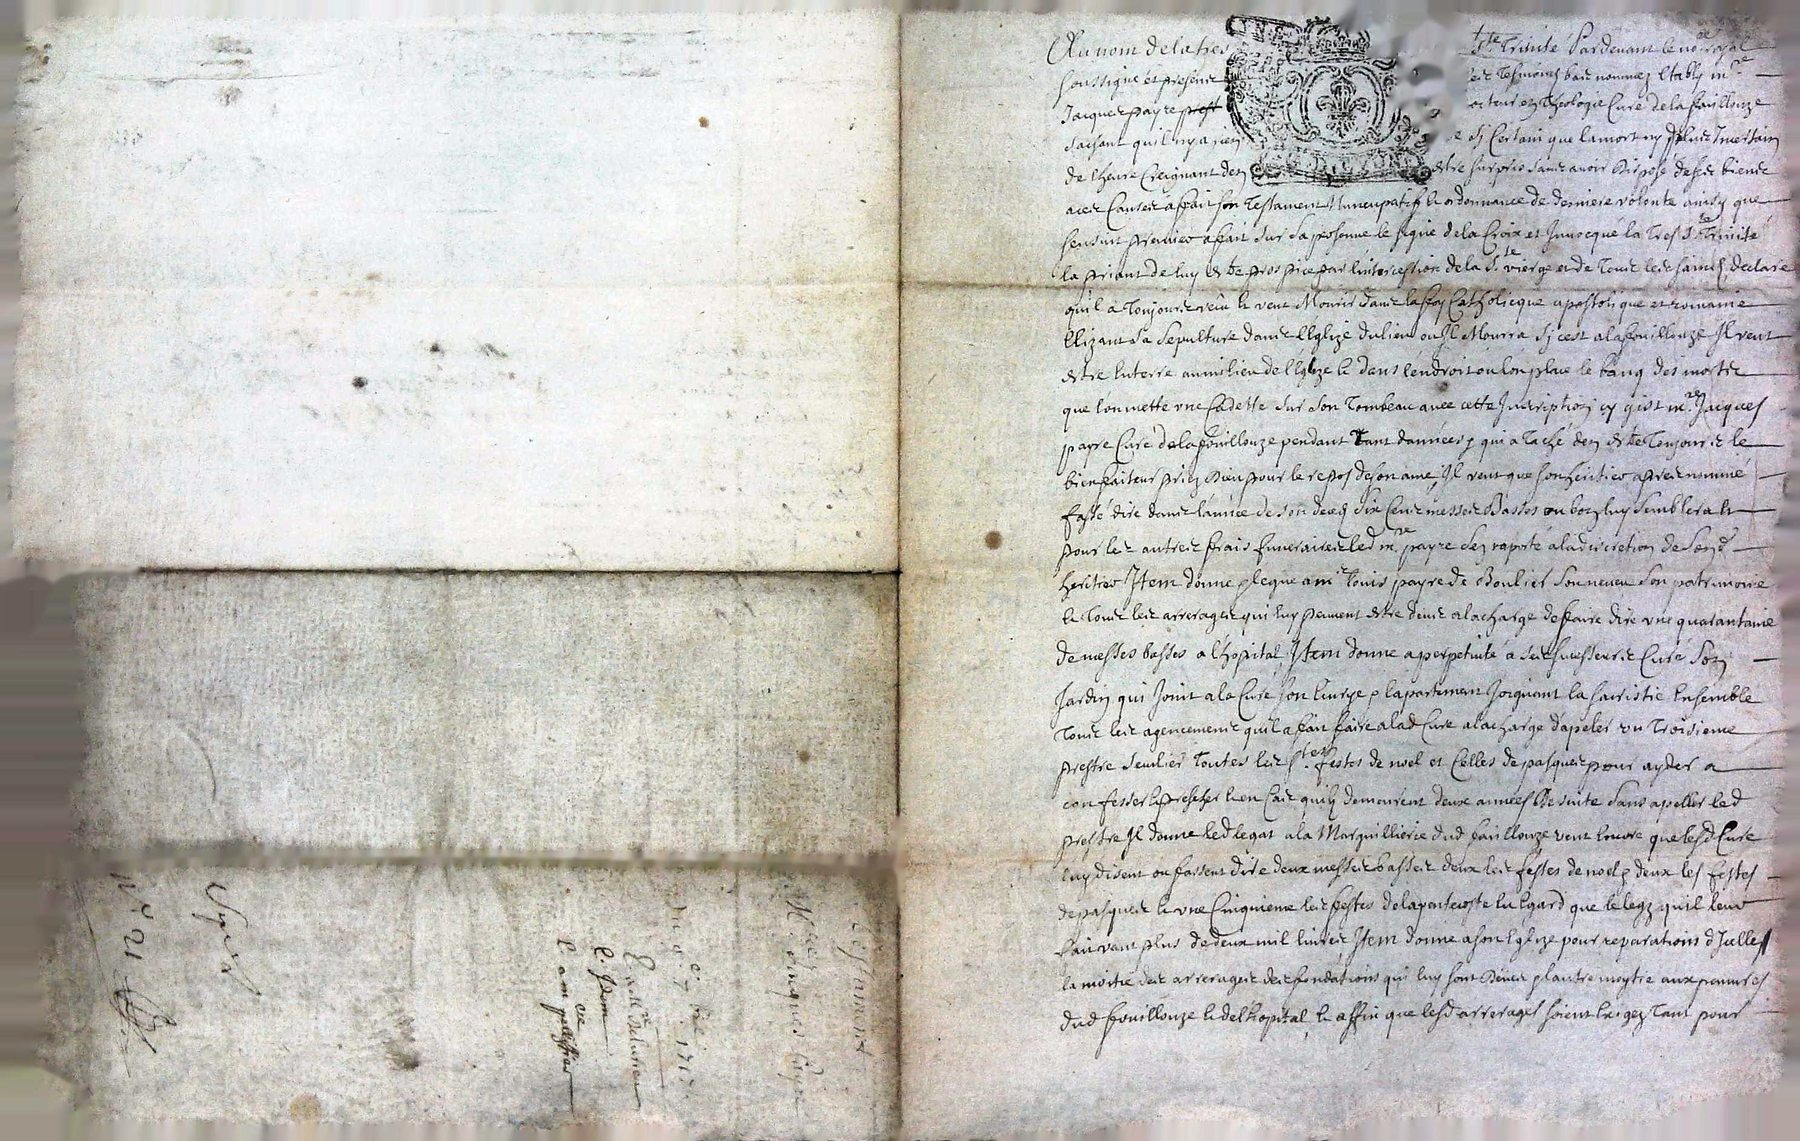 Au nom de la tres ste Trinité Pardevant le no.re royal
soussigné et présents tesmoins bas nommez Etably mre
Jacques payre prest docteur en theologie Curé de la faillouze
sachant quil ny a rien de sj Certain que la mort ny plus Incertain
de lheure Creignant den estre surpris sans avoir disposé de ses biens
a ces Causes a fait son Testament Nuncupatif & ordonnance de derniere volonte ainsy que
sensuit premier a fait sur sa personne le signe de la Croix et Invocqué la Tres Ste Trinité
la priant de luy estre propice par lintercession de la Ste vierge et de tous les saints, declare
quil a Toujours vécu & veut Mourir dans la foy Catholicque apostolique et romaine
Elizant sa sepulture dans lEglize du lieu ou Il Mourra sj cest a la fouillouze Il veut
estre Enterré au milieu de lEglize & dans lendroit ou lon place le banq des morts
que lon mette une Cadette sur son Tombeau avec cette Inscription cy gist mre Jacques
payre Curé de la fouillouze pendant tant dannées, qui a taché den estre Toujours le
bienfaiteur priez Dieu pour le repos de son ame, Il veut que son heritier apres nommé
fasse dire dans lannée de son deces six Cens messes Basses ou bon luy semblera &
pour les autres frais funeraires led mre payre sen raporte a la discretion de sond
heritier Item donne & legue a mre Louis payre de Boulieu son neveu son patrimoine
& tous les arrerages qui luy peuvent estre deus a la charge de faire dire une quarantaine
de messes basses a lhopital, Item donne a perpetuité a ses successeurs Curé son
Jardin qui Joint a la Cure son & lapartement Joignant la sacristie Ensemble
tous les agencements quil a fait faire a lad Cure a la charge dapeler un Troisieme
prestre seculier toutes les stes festes de noel et Celles de pasques pour ayder a
confesser & prescher & en Cas quils demeurent deux années de suite sans apeller led
prestre Il donne led legat a la Marguillerie dud faillouze veut Encore que lesd Cure
luy disent ou fassent dire deux messes basses deux les festes de noel & deux les festes
de pasques & une Cinquieme les festes de la pentecoste Eu Egard que le legz quil leur
fait vaut plus de deux mil livres Item donne a son Eglize pour reparations dIcelle
la moitié des arrerages des fondations qui luy sont deues & lautre moytié aux pauvres
dud fouillouze & de lhopital, & affin que lesd arrerages soient Exigez Tant pour
Testament
Mre Jacques Payre
du 9. 7bre 171
C. Item
Nr 21